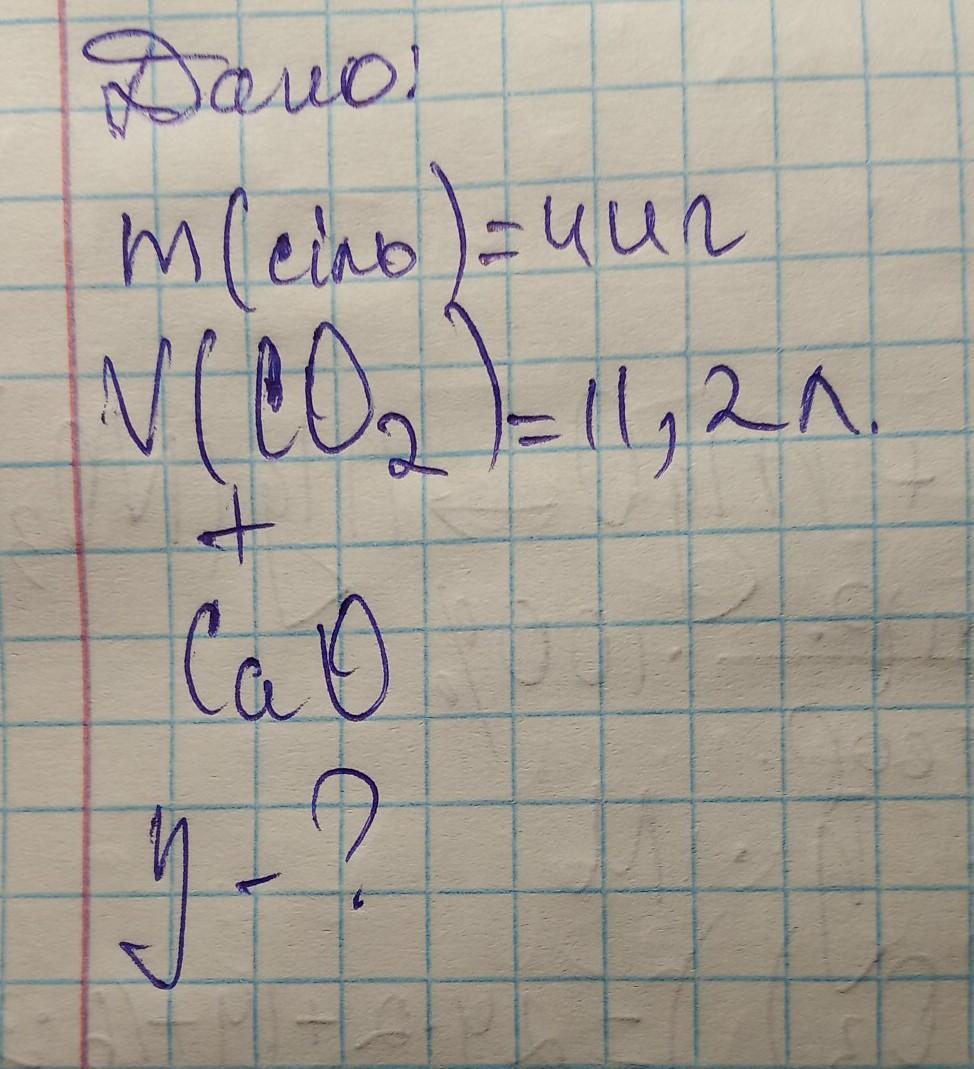 Дано:
m(сіль)=44г
V(CO₂)=11,2л.
+
CaO
y-?